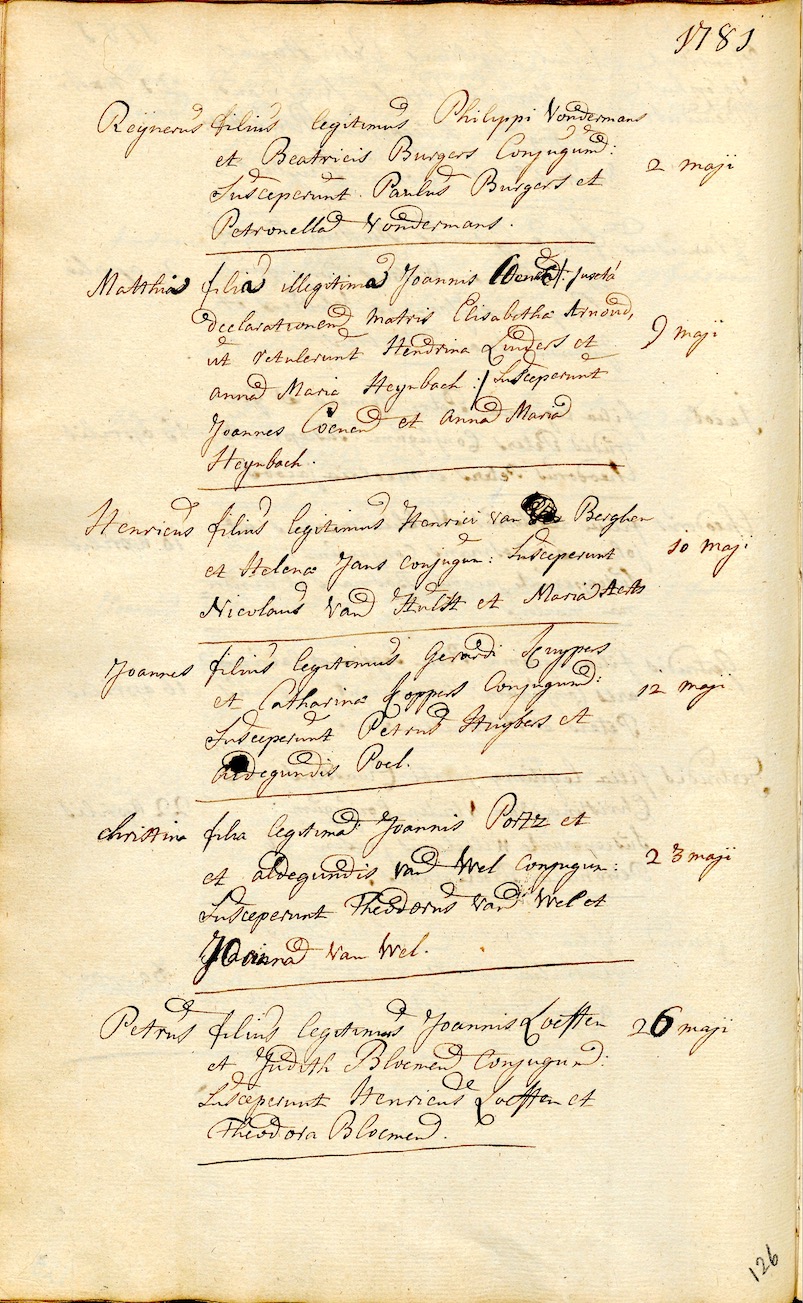 1781
Reijnerus filius legitimus Philippi Vondermans
et Beatricis Burgers Conjugum: 2 maji
Susceperunt Paulus Burgers et
Petronella Vondermans.
Matthia filia illegitima Joannis Coenen /: juxta
declarationem matris Elisabetha Arnoud, 9 maji
ut retulerunt Hendrina Linders et
anna Maria Heynbach :/ Susceperunt
Joannes Coenen et anna Maria
Heynbach.
Henricus filius legitimus Henrici van Berghen
et Helenæ Jans conjugum: Susceperunt 10 maji
Nicolaus Van Hulst et Maria Aerts
Joannes filius legitimus Gerardi Kuypers
et Catharinæ Coppers Conjugum: 12 maji
Susceperunt Petrus Huybers et
aldegundis Poel.
christina filia legitima Joannis Portz et
et aldegundis van Wel conjugum: 23 maji
Susceperunt Theodorus van Wel et
Joanna van Wel.
Petrus filius legitimus Joannis Loeffen 26 maji
et Judith Bloemen Conjugum:
Susceperunt Henricus Loeffen et
Theodora Bloemen.
126